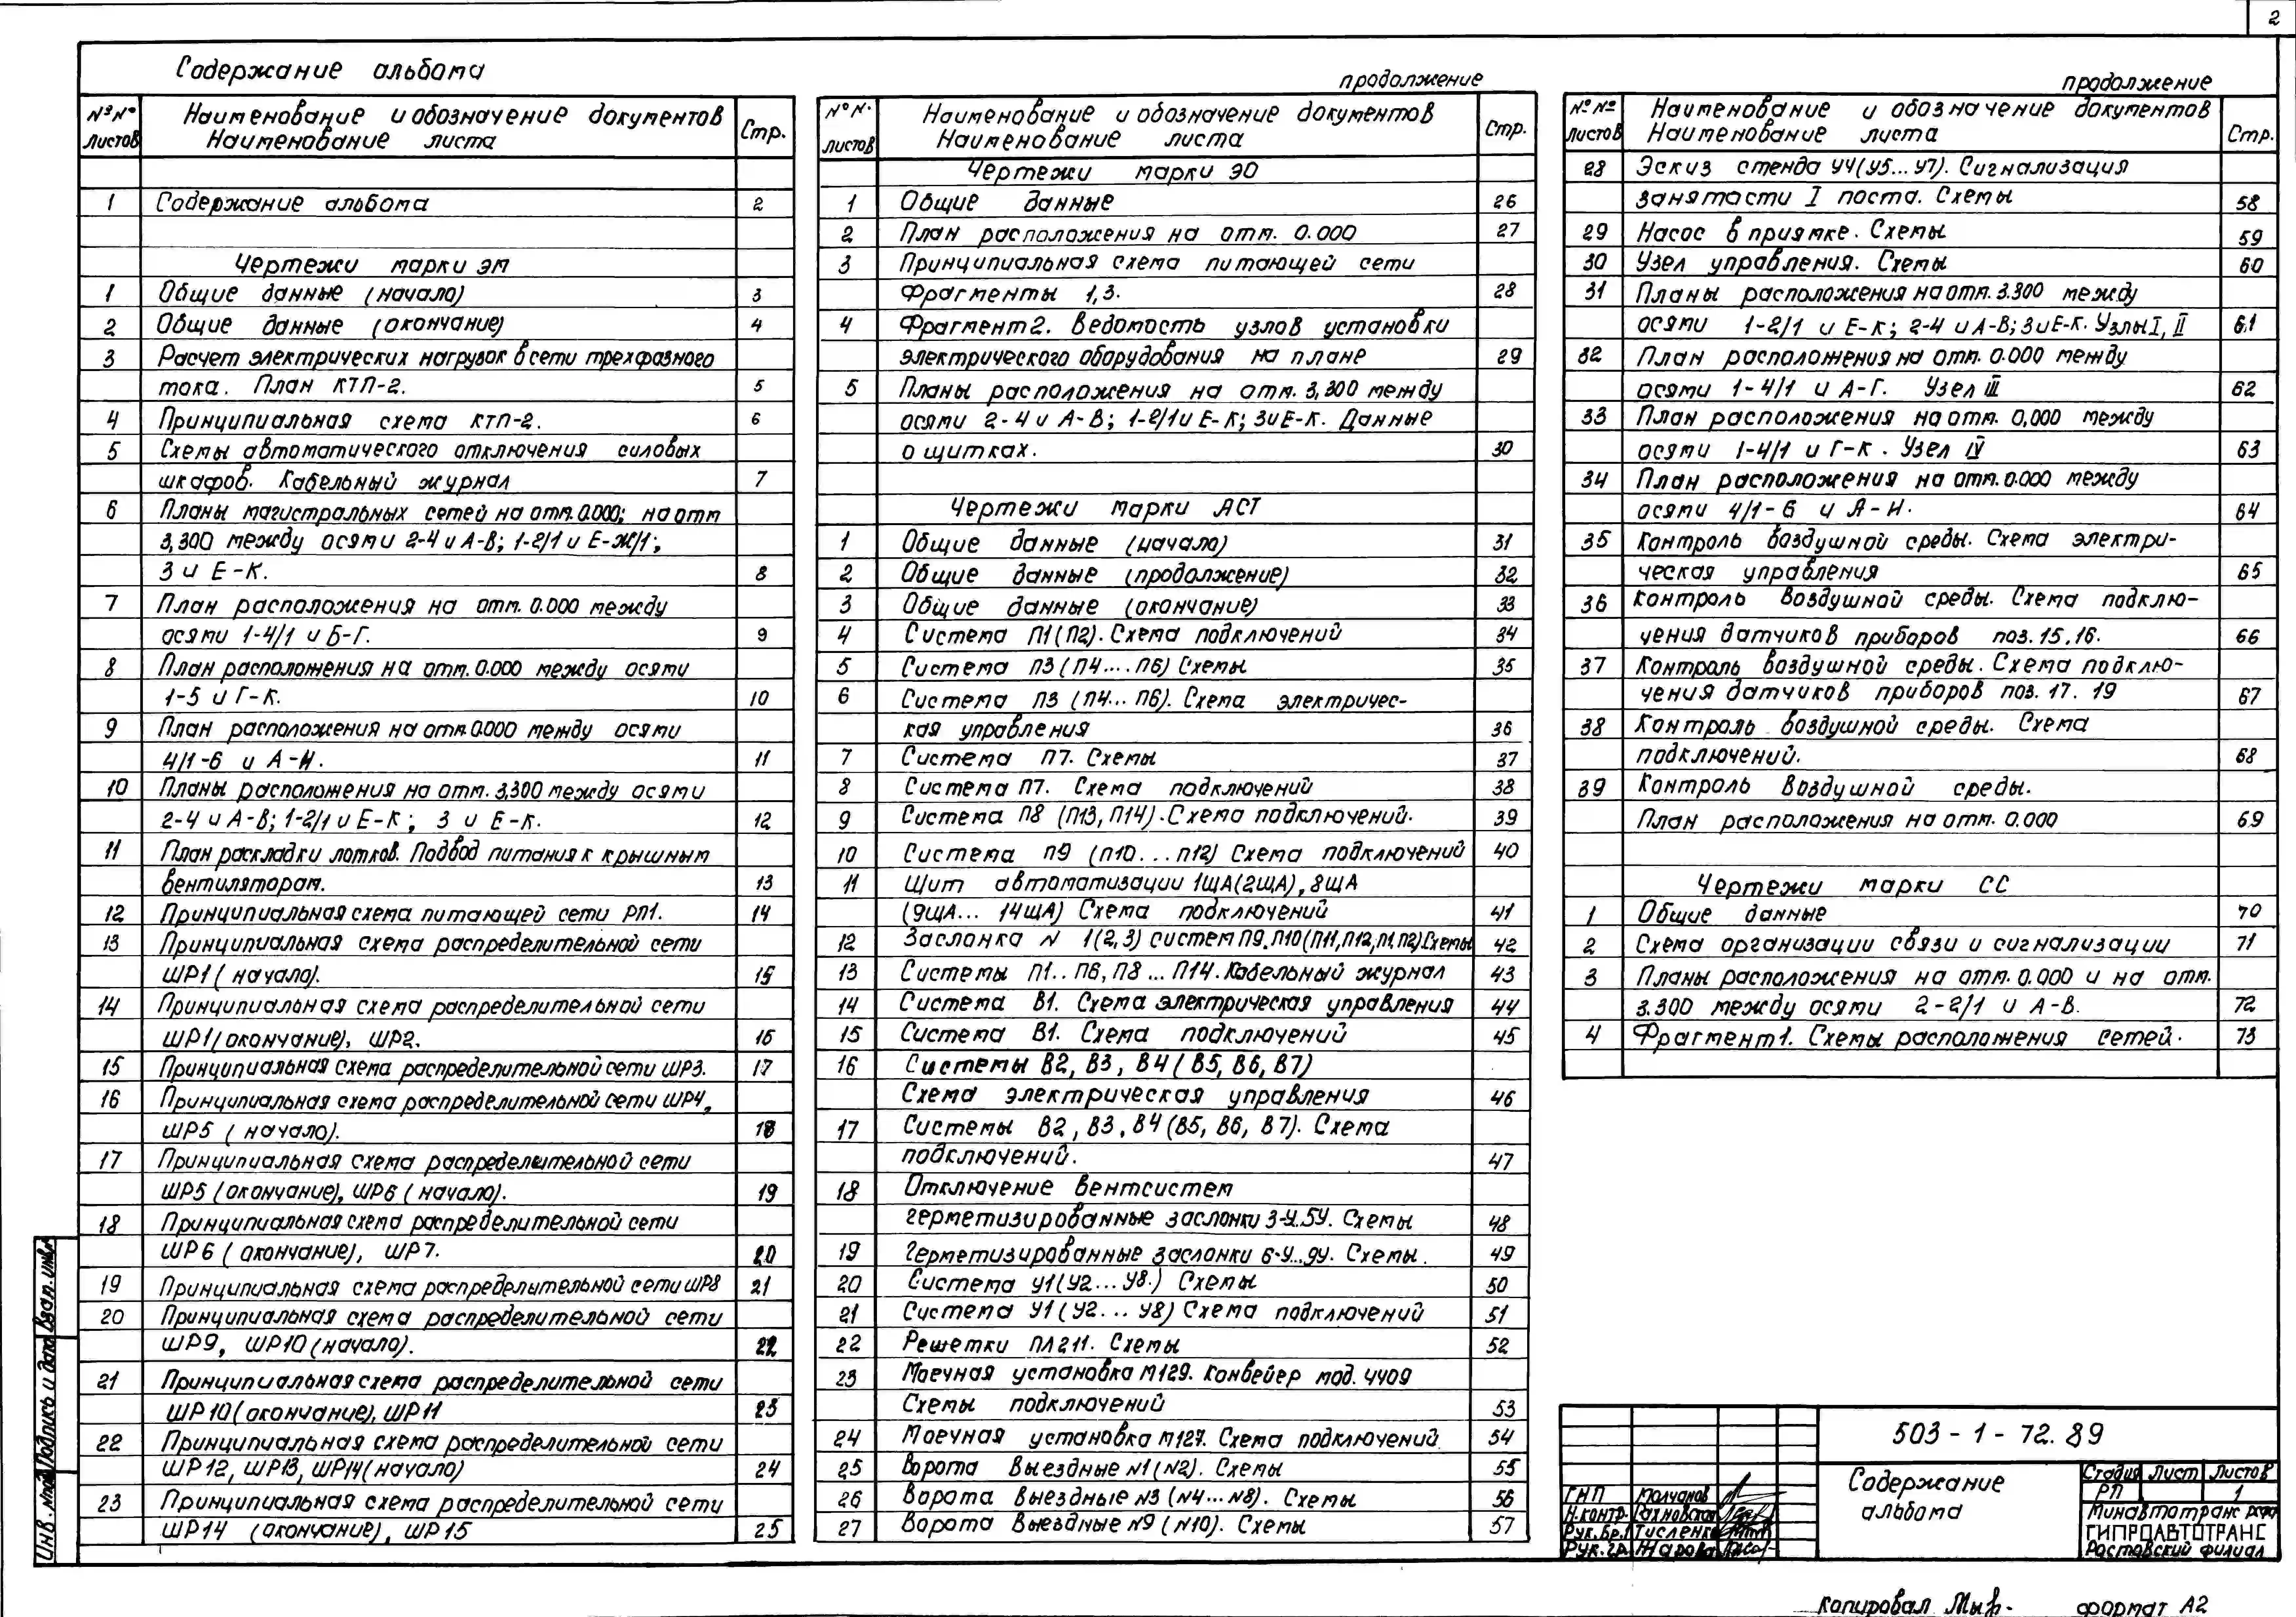 2
Содержание альбома
№№ листов | Наименование и обозначение документов Наименование листа | Стр.
1 Содержание альбома 2
Чертежи марки ЭМ
1 Общие данные (начало) 3
2 Общие данные (окончание) 4
3 Расчет электрических нагрузок в сети трехфазного
тока. План КТП-2. 5
4 Принципиальная схема КТП-2. 6
5 Схемы автоматического отключения силовых
шкафов. Кабельный журнал 7
6 Планы магистральных сетей на отм. 0.000; на отм
3,300 между осями 2-4 и А-В; 1-2/1 и Е-Ж/1;
3 и Е-К. 8
7 План расположения на отм. 0.000 между
осями 1-4/1 и Б-Г. 9
8 План расположения на отм. 0.000 между осями
1-5 и Г-К. 10
9 План расположения на отм. 0.000 между осями
4/1-6 и А-И. 11
10 Планы расположения на отм. 3,300 между осями
2-4 и А-В; 1-2/1 и Е-К; 3 и Е-К. 12
11 План раскладки лотков. Подвод питания к крышным
вентиляторам. 13
12 Принципиальная схема питающей сети РП1. 14
13 Принципиальная схема распределительной сети
ШР1 (начало). 15
14 Принципиальная схема распределительной сети
ШР1 (окончание), ШР2. 16
15 Принципиальная схема распределительной сети ШР3. 17
16 Принципиальная схема распределительной сети ШР4,
ШР5 (начало). 18
17 Принципиальная схема распределительной сети
ШР5 (окончание), ШР6 (начало). 19
18 Принципиальная схема распределительной сети
ШР6 (окончание), ШР7. 20
19 Принципиальная схема распределительной сети ШР8 21
20 Принципиальная схема распределительной сети
ШР9, ШР10 (начало). 22
21 Принципиальная схема распределительной сети
ШР10 (окончание), ШР11 23
22 Принципиальная схема распределительной сети
ШР12, ШР13, ШР14 (начало) 24
23 Принципиальная схема распределительной сети
ШР14 (окончание), ШР15 25
продолжение
№№ листов | Наименование и обозначение документов Наименование листа | Стр.
Чертежи марки ЭО
1 Общие данные 26
2 План расположения на отм. 0.000 27
3 Принципиальная схема питающей сети
Фрагменты 1,3. 28
4 Фрагмент 2. Ведомость узлов установки
электрического оборудования на плане 29
5 Планы расположения на отм. 3,300 между
осями 2-4 и А-В; 1-2/1 и Е-К; 3 и Е-К. Данные
о щитках. 30
Чертежи марки АСТ
1 Общие данные (начало) 31
2 Общие данные (продолжение) 32
3 Общие данные (окончание) 33
4 Система П1 (П2). Схема подключений 34
5 Система П3 (П4....П6) Схемы 35
6 Система П3 (П4... П6). Схема электричес-
кая управления 36
7 Система П7. Схемы 37
8 Система П7. Схема подключений 38
9 Система П8 (П13, П14). Схема подключений. 39
10 Система П9 (П10...П12) Схема подключений 40
11 Щит автоматизации 1ЩА (2ЩА), 8ЩА
(9ЩА... 14ЩА) Схема подключений 41
12 Заслонка N 1(2,3) систем П9, П10 (П11, П12, П1, П2) Схемы 42
13 Системы П1.. П6, П8 ... П14. Кабельный журнал 43
14 Система В1. Схема электрическая управления 44
15 Система В1. Схема подключений 45
16 Системы В2, В3, В4 (В5, В6, В7)
Схема электрическая управления 46
17 Системы В2, В3, В4 (В5, В6, В7). Схема
подключений. 47
18 Отключение вентсистем
герметизированные заслонки 3-У..5У. Схемы 48
19 Герметизированные заслонки 6-У...9У. Схемы. 49
20 Система У1 (У2...У8.) Схемы 50
21 Система У1 (У2... У8) Схема подключений 51
22 Решетки ПЛ211. Схемы 52
23 Моечная установка М129. Конвейер мод. 4409
Схемы подключений 53
24 Моечная установка М127. Схема подключений 54
25 Ворота выездные N1 (N2). Схемы 55
26 Ворота выездные N3 (N4...N8). Схемы 56
27 Ворота выездные N9 (N10). Схемы 57
продолжение
№№ листов | Наименование и обозначение документов Наименование листа | Стр.
28 Эскиз стенда У4 (У5... У7). Сигнализация
занятости I поста. Схемы 58
29 Насос в приямке. Схемы 59
30 Узел управления. Схемы 60
31 Планы расположения на отм. 3.300 между
осями 1-2/1 и Е-К; 2-4 и А-В; 3 и Е-К. Узлы I, II 61
32 План расположения на отм. 0.000 между
осями 1-4/1 и А-Г. Узел III 62
33 План расположения на отм. 0,000 между
осями 1-4/1 и Г-К. Узел IV 63
34 План расположения на отм. 0.000 между
осями 4/1-6 и А-И. 64
35 Контроль воздушной среды. Схема электри-
ческая управления 65
36 Контроль воздушной среды. Схема подклю-
чения датчиков приборов поз. 15, 16. 66
37 Контроль воздушной среды. Схема подклю-
чения датчиков приборов поз. 17. 19 67
38 Контроль воздушной среды. Схема
подключений. 68
39 Контроль воздушной среды.
План расположения на отм. 0.000 69
Чертежи марки СС
1 Общие данные 70
2 Схема организации связи и сигнализации 71
3 Планы расположения на отм. 0.000 и на отм.
3.300 между осями 2-2/1 и А-В. 72
4 Фрагмент 1. Схемы расположения сетей. 73
503-1-72.89
Содержание
альбома
Стадия Лист Листов
РП 1
Минавтотранс
ГИПРОАВТОТРАНС
Ростовский филиал
ГИП Молчанов
Н.контр.
Рук.бр. Тисленко
Рук.гр. Жарова
Инв. № подл. Подпись и дата Взам. инв. №
Копировал формат А2